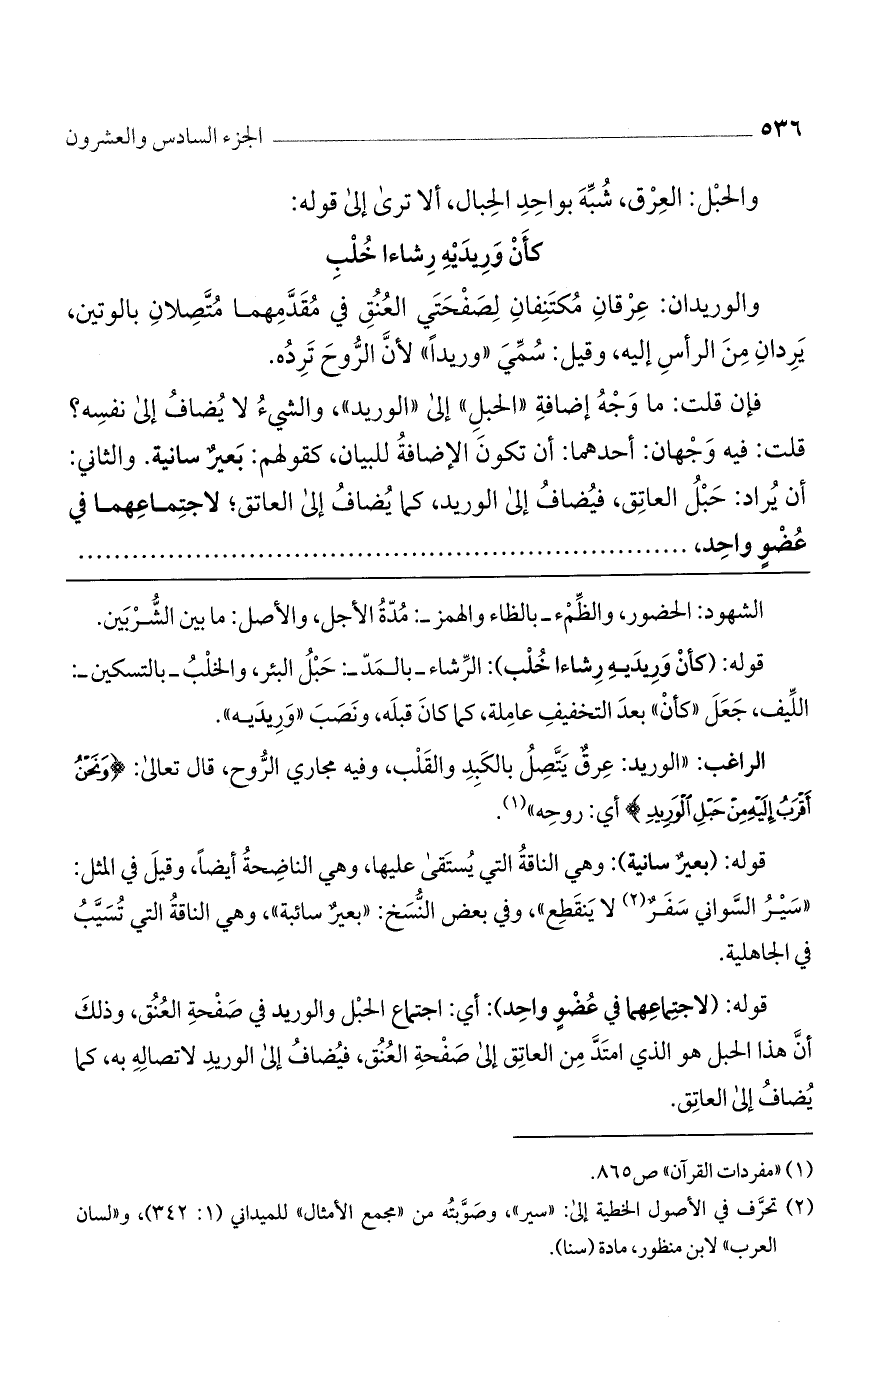 ٥٣٦ الجزء السادس والعشرون
والحَبْل: العِرْق، شُبِّهَ بواحِدِ الحِبال، ألا ترىٰ إلىٰ قوله:
كأنْ وَرِيدَيْهِ رِشاءا خُلْبِ
والوريدان: عِرْقانِ مُكتَنِفانِ لِصَفْحَتَي العُنُقِ في مُقَدَّمِهما مُتَّصِلانِ بالوتين،
يَرِدانِ مِنَ الرأسِ إليه، وقيل: سُمِّيَ «وريداً» لأنَّ الرُّوحَ تَرِدُه.
فإن قلت: ما وَجْهُ إضافةِ «الحبلِ» إلىٰ «الوريد»، والشيءُ لا يُضافُ إلىٰ نفسِه؟
قلت: فيه وَجْهان: أحدهما: أن تكونَ الإضافةُ للبيان، كقولهم: بَعيرُ سانية. والثاني:
أن يُراد: حَبْلُ العاتِق، فيُضافُ إلىٰ الوريد، كما يُضافُ إلىٰ العاتق؛ لاجتِماعِهما في
عُضْوٍ واحِد، ....................................................................
الشهود: الحضور، والظِّمْء ـ بالظاء والهمز ـ: مُدّةُ الأجل، والأصل: ما بين الشُّرْبَين.
قوله: (كأنْ وَرِيدَيهِ رِشاءا خُلْب): الرِّشاء ـ بالمَدّ ـ: حَبْلُ البئر، والخلْبُ ـ بالتسكين ـ:
اللِّيف، جَعَلَ «كأنْ» بعدَ التخفيفِ عامِلة، كما كانَ قبلَه، ونَصَبَ «وَرِيدَيه».
الراغب: «الوريد: عِرقٌ يَتَّصِلُ بالكَبِدِ والقَلْب، وفيه مجاري الرُّوح، قال تعالىٰ: ﴿وَنَحْنُ
أَقْرَبُ إِلَيْهِ مِنْ حَبْلِ ٱلْوَرِيدِ﴾ أي: روحِه»(١).
قوله: (بعيرُ سانية): وهي الناقةُ التي يُستَقىٰ عليها، وهي الناضِحةُ أيضاً، وقيلَ في المثل:
«سَيْرُ السَّواني سَفَرٌ(٢) لا يَنقَطِع»، وفي بعض النُّسَخ: «بعيرُ سائبة»، وهي الناقةُ التي تُسَيَّبُ
في الجاهلية.
قوله: (لاجتِماعِهما في عُضْوٍ واحِد): أي: اجتماع الحبْل والوريد في صَفْحةِ العُنُق، وذلكَ
أنَّ هذا الحبل هو الذي امتَدَّ مِن العاتِق إلىٰ صَفْحةِ العُنُق، فيُضافُ إلىٰ الوريدِ لاتصالِهِ به، كما
يُضافُ إلىٰ العاتِق.
(١) «مفردات القرآن» ص٨٦٥.
(٢) تحرَّف في الأصول الخطية إلىٰ: «سير»، وصَوَّبتُه من «مجمع الأمثال» للميداني (١: ٣٤٢)، و«لسان
العرب» لابن منظور، مادة (سنا).